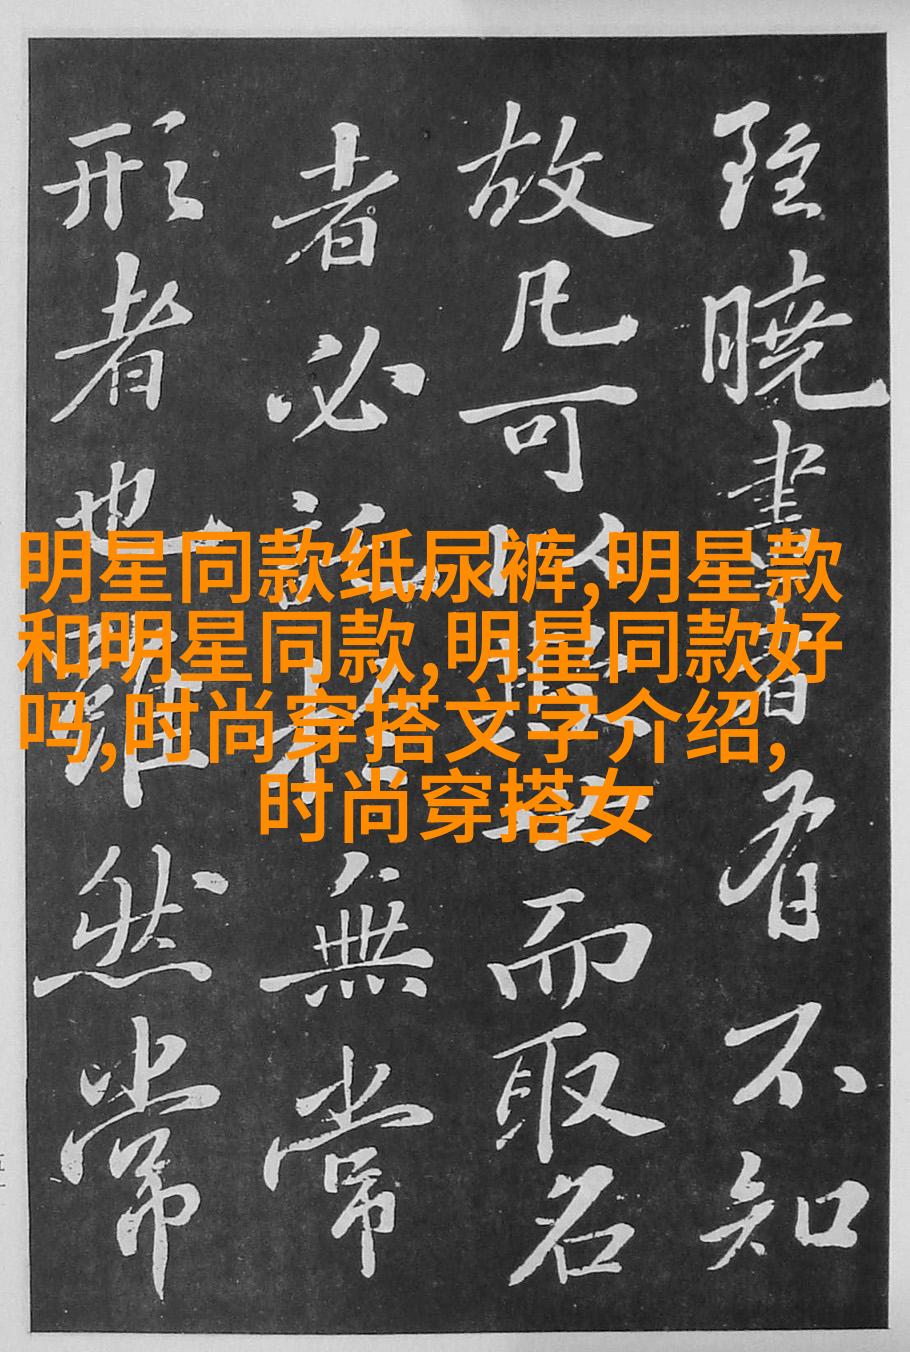 雖曉畫者有不知
故凡可以欺世而取名
者必託於無常
形者也雖然常
明星同款纸尿裤,明星款
和明星同款,明星同款好
吗,时尚穿搭文字介绍,
时尚穿搭女